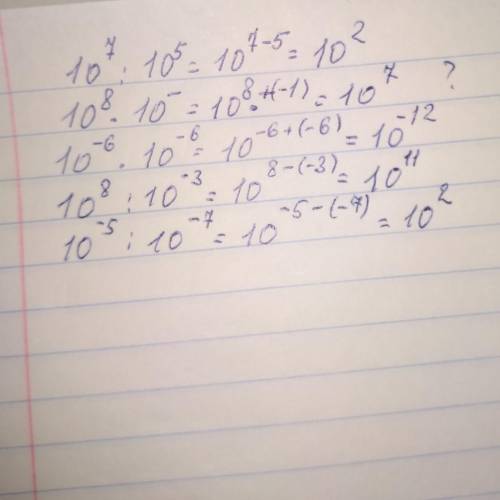 10⁷ : 10⁵ = 10⁷⁻⁵ = 10²
10⁸ · 10⁻ = 10⁸⁺⁽⁻¹⁾ = 10⁷ ?
10⁻⁶ · 10⁻⁶ = 10⁻⁶⁺⁽⁻⁶⁾ = 10⁻¹²
10⁸ : 10⁻³ = 10⁸⁻⁽⁻³⁾ = 10¹¹
10⁻⁵ : 10⁻⁷ = 10⁻⁵⁻⁽⁻⁷⁾ = 10²